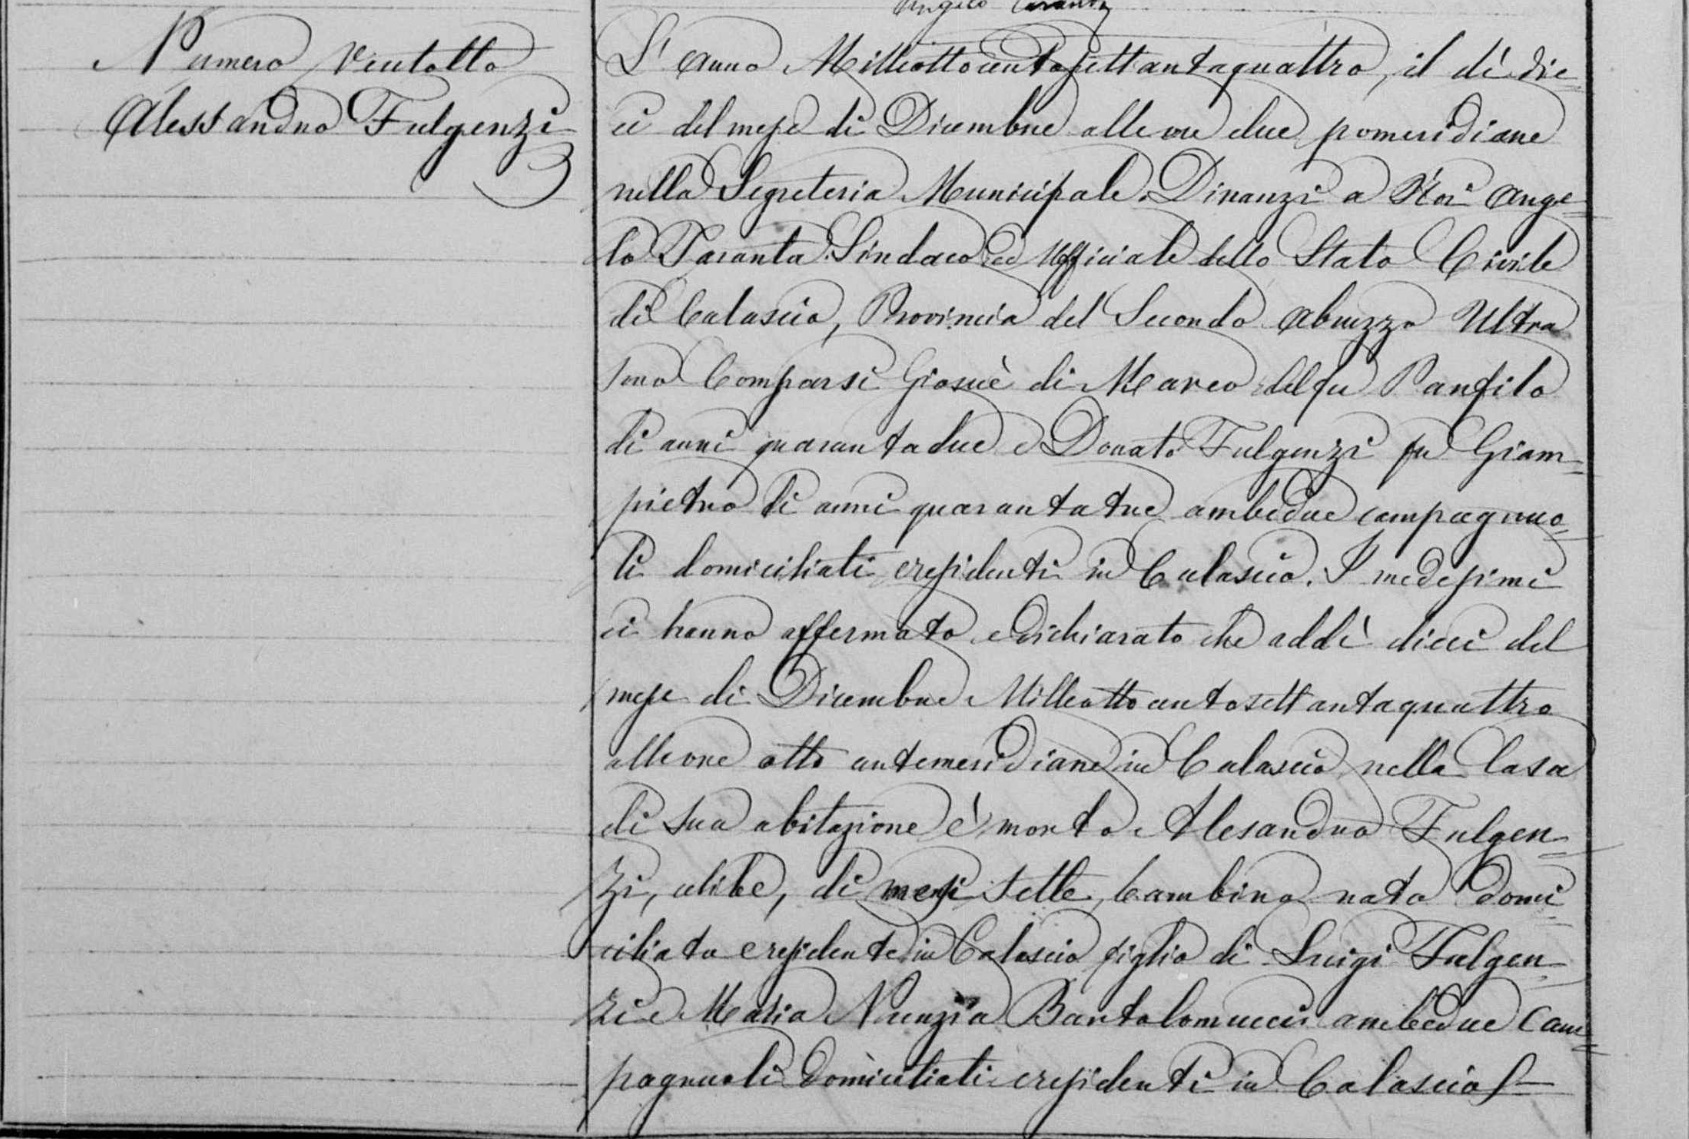 Angelo Taranta
Numero Ventotto
Alessandro Fulgenzi
L'anno Milleottocentosettantaquattro, il dì die=
ci del mese di Dicembre alle ore due pomeridiane
nella Segreteria Municipale. Dinanzi a Noi Ange=
lo Taranta Sindaco ed Ufficiale dello Stato Civile
di Calascio, Provincia del Secondo Abruzzo Ultra
sono Comparsi Giosuè di Marco del fu Panfilo
di anni quarantadue e Donato Fulgenzi fu Giam=
pietro di anni quarantatre ambedue campagnuo=
li domiciliati e residenti in Calascio. I medesimi
ci hanno affermato e dichiarato che addì dieci del
mese di Dicembre Milleottocentosettantaquattro
alle ore otto antemeridiane in Calascio nella Casa
di sua abitazione è morto Alesandro Fulgen=
zi, celibe, di mesi sette, bambino nato domi=
ciliato e residente in Calascio figlio di Luigi Fulgen=
zi e Maria Nunzia Bartolomucci ambedue Cam=
pagnuoli domiciliati e residenti in Calascio